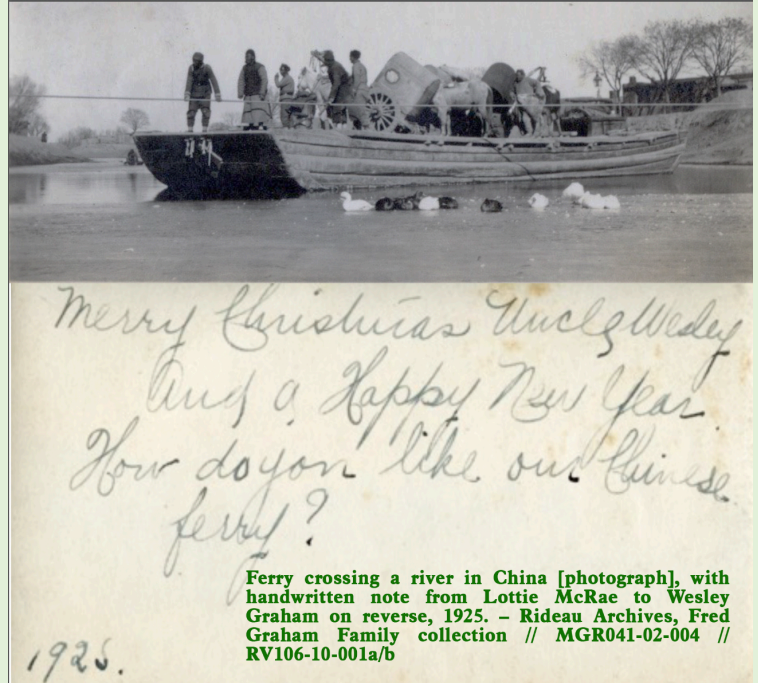 Merry Christmas Uncle Wesley
And a Happy New Year.
How do you like our Chinese
ferry?
Ferry crossing a river in China [photograph], with
handwritten note from Lottie McRae to Wesley
Graham on reverse, 1925. – Rideau Archives, Fred
Graham Family collection // MGR041-02-004 //
RV106-10-001a/b
1925.